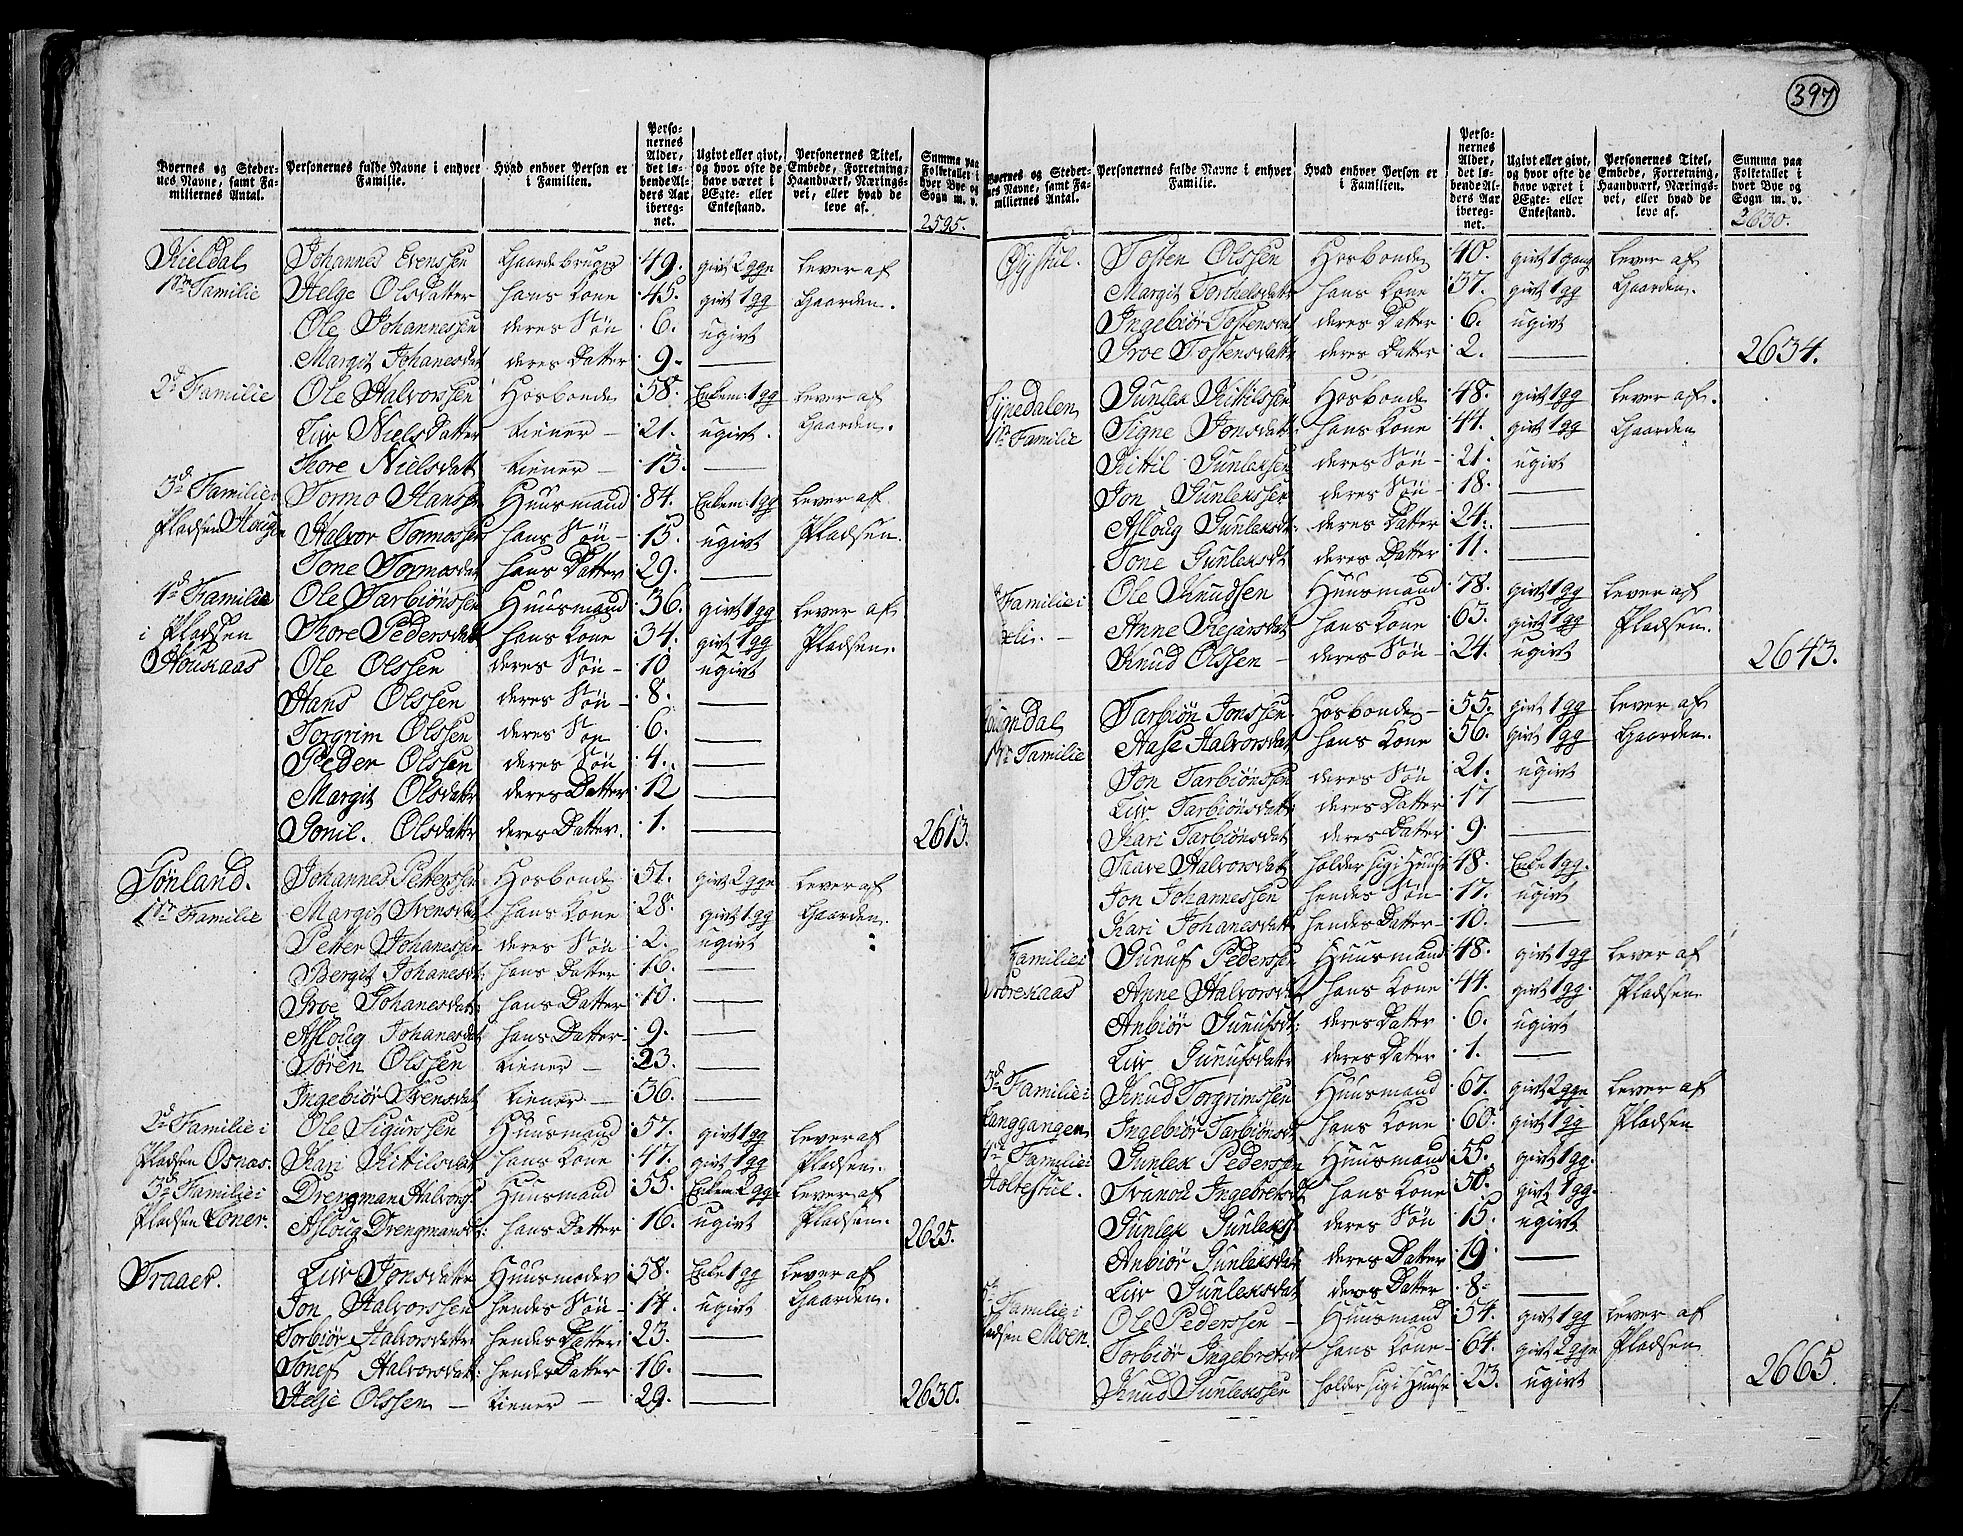 397
Byernes og Stedernes Navne, samt Familiernes Antal. | Personernes fulde Navne i enhver Familie. | Hvad enhver Person er i Familien. | Personernes Alder, det løbende Alders Aar iberegnet. | Ugivt eller givt, og hvor ofte de have været i Egte- eller Enkestand. | Personernes Titel, Embede, Forretning, Haandværk, Næringsvei, eller hvad de leve af. | Summa paa Folketallet i hver Bye og Sogn m. v.
2595.
Kieldal | Johannes Evenssen | Gaardebruger | 49. | givt 2 gge | lever af
1te Familie | Helge Olsdatter | hans Kone | 45. | givt 1 gg | Gaarden.
Ole Johannessen | deres Søn | 6. | ugivt
Margit Johanesdat | deres Datter | 9. | —
2d Familie | Ole Halvorssen | Hosbonde | 58. | Enkem: 1 gg | lever af
Liv Nielsdatter | tiener | 21. | ugivt. | Gaarden.
Thore Nielsdatt | tiener | 13. | —
3d Familie i | Tormo Hanss | Huusmand | 84. | Enkem: 1 gg | lever af
Pladsen Hougen | Halvor Tormossen | hans Søn | 15. | ugivt | Pladsen.
Tone Tormosdat | hans Datter | 29. | —
4de Familie | Ole Tarbiönssen | Huusmand | 36. | givt 1 gg | lever af
i Pladsen | Thore Pedersdat | hans Kone | 34. | givt 1 gg | Pladsen.
Ole Olssen | deres Søn | 10. | ugivt
Hans Olssen | deres Søn | 8. | —
Torgrim Olssen | deres Søn | 6. | —
Peder Olssen | deres Søn | 4. | —
Margit Olsdatr | deres Datter | 12 | —
Gonil. Olsdatter | deres Datter. | 1. | — | 2613.
Sönland. | Johannes Petterssen | Hosbonde | 51. | givt 2 gge | lever af
1te Familie | Margit Svensdat | hans Kone | 28. | givt 1 gg | Gaarden
Petter Johanessen | deres Søn | 2. | ugivt
Bergit Johanesdt: | hans Datter | 16. | —
Groe Johanesdat | hans Datter | 10. | —
Asloug Johanesdat | hans Datter | 9. | —
Sören Olssen | tiener | 23. | —
Ingebiör Svensdat | tiener | 36. | —
2d Familie i | Ole Sigurssen | Huusmand | 57. | givt 1 gg | lever af
Pladsen Osnas. | Kari Kittilsdat | hans Kone | 47. | givt 1 gg | Pladsen.
3d Familie i | Drengman Halvors | Huusmand | 55. | Enkem 2 gge | lever af
Pladsen Loner. | Asloug Drengmansdt: | hans Datter | 16. | ugivt | Pladsen. | 2625.
Traaer. | Liv Jonsdatter | Huusmoder | 58. | Enke 1 gg | lever af
Jon Halvorssen | hendes Søn | 14. | ugivt | Gaarden.
Torbiör Halvorsdatter | hendes Datter | 23. | —
Halvorsdatt: | hendes Datter | 16. | —
Helje Olssen | tiener | 29. | 2630.
Byernes og Stedernes Navne, samt Familiernes Antal. | Personernes fulde Navne i enhver Familie. | Hvad enhver Person er i Familien. | Personernes Alder, det løbende Alders Aar iberegnet. | Ugivt eller givt, og hvor ofte de have været i Egte- eller Enkestand. | Personernes Titel, Embede, Forretning, Haandværk, Næringsvei, eller hvad de leve af. | Summa paa Folketallet i hver Bye og Sogn m. v.
2630.
Öystul. | Tosten Olssen | Hosbonde | 40. | givt 1 gang | lever af
Margit Torchelsdatr | hans Kone | 37. | givt 1 gg | Gaarden.
Ingebiör Tostensdat | deres Datter | 6. | ugivt
Groe Tostensdatt | deres Datter | 2. | — | 2634.
Gunlek Kittilssen | Hosbonde | 48. | givt 1 gg | lever af.
1te Familie | Signe Jonsdat | hans Kone | 44. | givt 1 gg | Gaarden
Kittil Gunlekssen | deres Søn | 21. | ugivt
Jon Gunlekssen | deres Søn | 18. | —
Asloug Gunleksdt: | deres Datter | 24. | —
Tone Gunleksdt | deres Datter | 11. | —
Familie i | Ole Knudsen | Huusmand | 78. | givt 1 gg | lever af
Anne Rejarsdat | hans Kone | 63. | givt 1 gg | Pladsen.
Knud Olssen | deres Søn | 24. | ugivt | 2643.
Tarbiön Jonssen | Hosbonde | 55. | givt 1 gg | lever af
1te Familie | Aase Halvorsdat | hans Kone | 56. | givt 1 gg | Gaarden.
Jon Tarbiönssen | deres Søn | 21. | ugivt
Liv Tarbiönsdatr | deres Datter | 17 | —
Kari Tarbiönsdat | deres Datter | 9. | —
Taave Halvorsdat | holder sig i Huuse | 48. | Enke 1 gg.
Jon Johannessen | hendes Søn | 17. | ugivt
Kari Johanesdatt | hendes Datter | 10. | —
Familie i | Gunuf Pederssen | Huusmand | 48. | givt 1 gg | lever af
Anne Halvorsd | hans Kone | 44. | givt 1 gg. | Pladsen
Anbiör Gunufsdt: | deres Datter | 6. | ugivt
Liv Gunufsdatr | deres Datter | 1. | —
3d Familie i | Knud Torgrimssen | Huusmand | 67. | givt 2 gge | lever af
Langgangen | Ingebiör Tarbiönsdt | hans Kone | 60. | givt 1 gg | Pladsen
4de Familie i | Gunlek Pederssen | Huusmand | 55. | givt 1 gg.
Holtestul. | Svanou Ingebretsdt | hans Kone | 50. | givt 1 gg.
Gunlek Gunleks | deres Søn | 15. | ugivt
Anbiör Gunleksdat | deres Datter | 19. | —
Liv Gunleksdat | deres Datter | 8. | —
Familie i | Ole Pederssen | Huusmand | 54. | givt 1 gg | lever af
Pladsen Moen. | Torbiör Ingebretsdt | hans Kone | 64. | givt 2 gge | Pladsen
Knud Gunlekssen | holder sig i Huuse | 23. | ugivt | 2665.